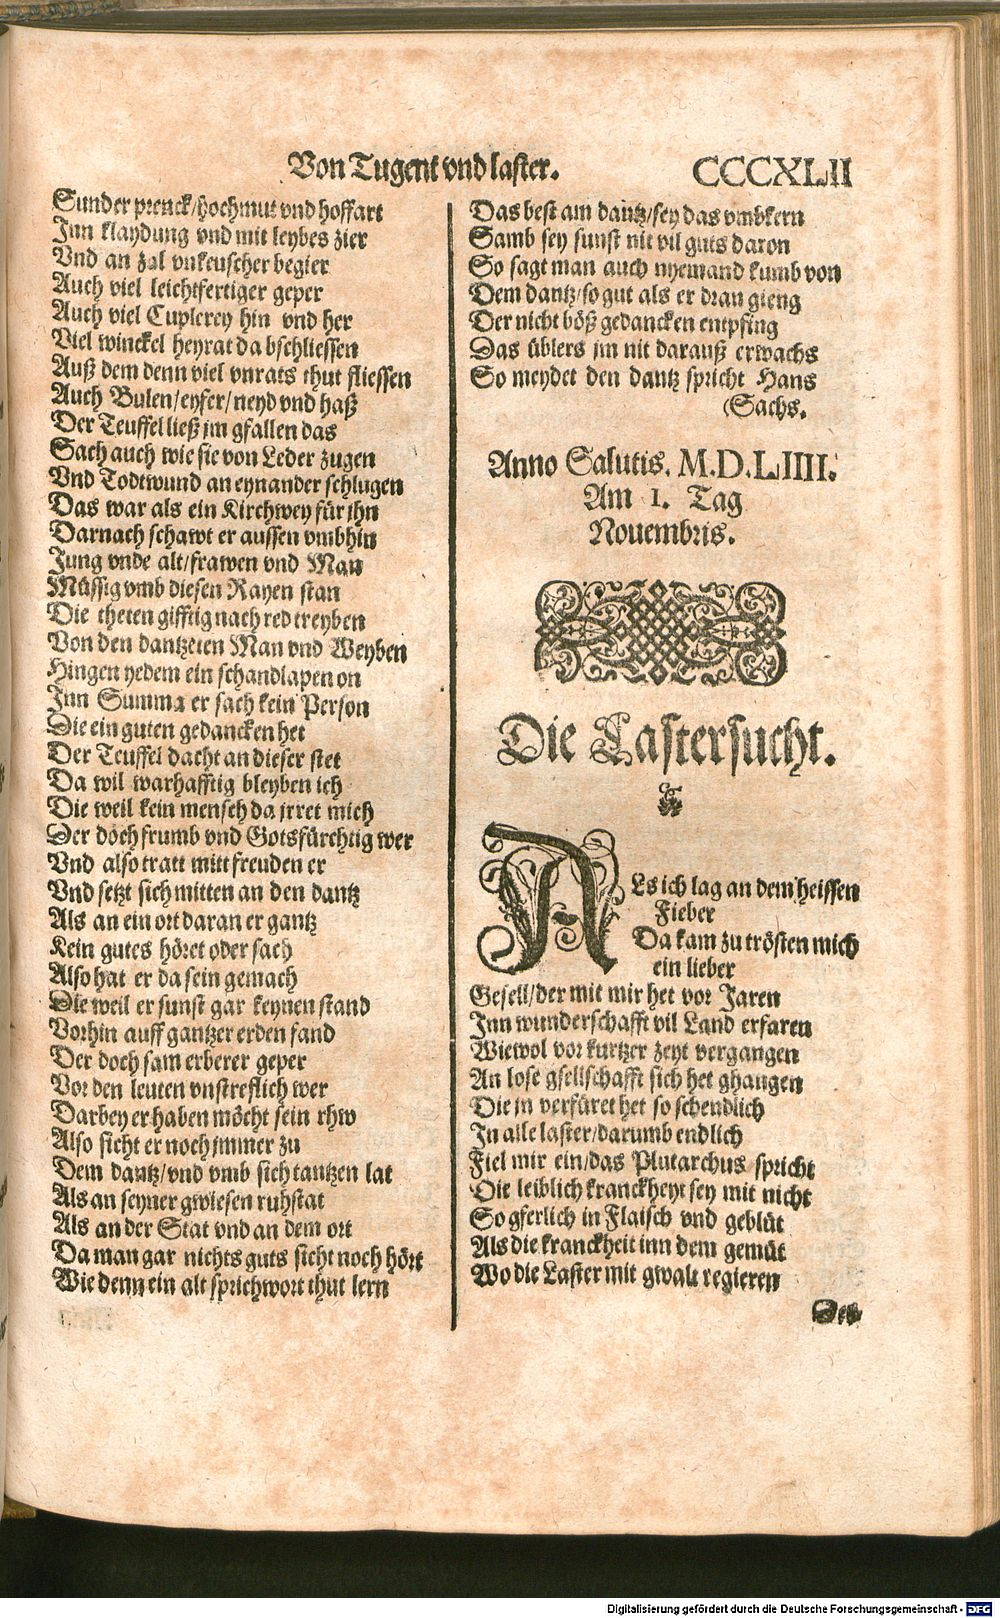 Von Tugent vnd laster.
CCCXLII
Sunder prenck/hochmut vnd hoffart
Jnn klaydung vnd mit leybes zier
Vnd an zal vnkeuscher begier
Auch viel leichtfertiger geper
Auch viel Cuplerey hin vnd her
Viel winckel heyrat da bschliessen
Auß dem denn viel vnrats thut fliessen
Auch Bulen/eyfer/neyd vnd haß
Der Teuffel ließ jm gfallen das
Sach auch wie sie von Leder zugen
Vnd Todtwund an eynander schlugen
Das war als ein Kirchwey für jhn
Darnach schawt er aussen vmbhin
Jung vnde alt/frawen vnd Man
Müssig vmb diesen Rayen stan
Die theten gifftig nach red treyben
Von den dantzeten Man vnd Weyben
Hingen yedem ein schandlapen on
Jnn Summa er sach kein Person
Die ein guten gedancken het
Der Teuffel dacht an dieser stet
Da wil warhafftig bleyben ich
Die weil kein mensch da jrret mich
Der doch frumb vnd Gotsfürchtig wer
Vnd also tratt mitt freuden er
Vnd setzt sich mitten an den dantz
Als an ein ort daran er gantz
Kein gutes höret oder sach
Also hat er da sein gemach
Die weil er sunst gar keynen stand
Vorhin auff gantzer erden fand
Der doch sam erberer geper
Vor den leuten vnstreflich wer
Darbey er haben möcht sein rhw
Also sicht er noch jmmer zu
Dem dantz/vnd vmb sich tantzen lat
Als an seyner gwiesen ruhstat
Als an der Stat vnd an dem ort
Da man gar nichts guts sicht noch hört
Wie denn ein alt sprichwort thut lern
Das best am dantz/sey das vmbkern
Samb sey sunst nit vil guts daron
So sagt man auch nyemand kumb von
Dem dantz/so gut als er dran gieng
Der nicht böß gedancken entpfing
Das üblers jm nit darauß erwachs
So meydet den dantz spricht Hans
(Sachs.
Anno Salutis. M.D.LIIII.
Am 1. Tag
Nouembris.
Die Lastersucht.
ALs ich lag an dem heissen
Fieber
Da kam zu trösten mich
ein lieber
Gesell/der mit mir het vor Jaren
Jnn wunderschafft vil Land erfaren
Wiewol vor kurtzer zeyt vergangen
An lose gsellschafft sich het ghangen
Die jn verfüret het so schendlich
Jn alle laster/darumb endlich
Fiel mir ein/das Plutarchus spricht
Die leiblich kranckheyt sey mit nicht
So gferlich in Flaisch vnd geblüt
Als die kranckheit inn dem gemüt
Wo die Laster mit gwalt regieren
Der